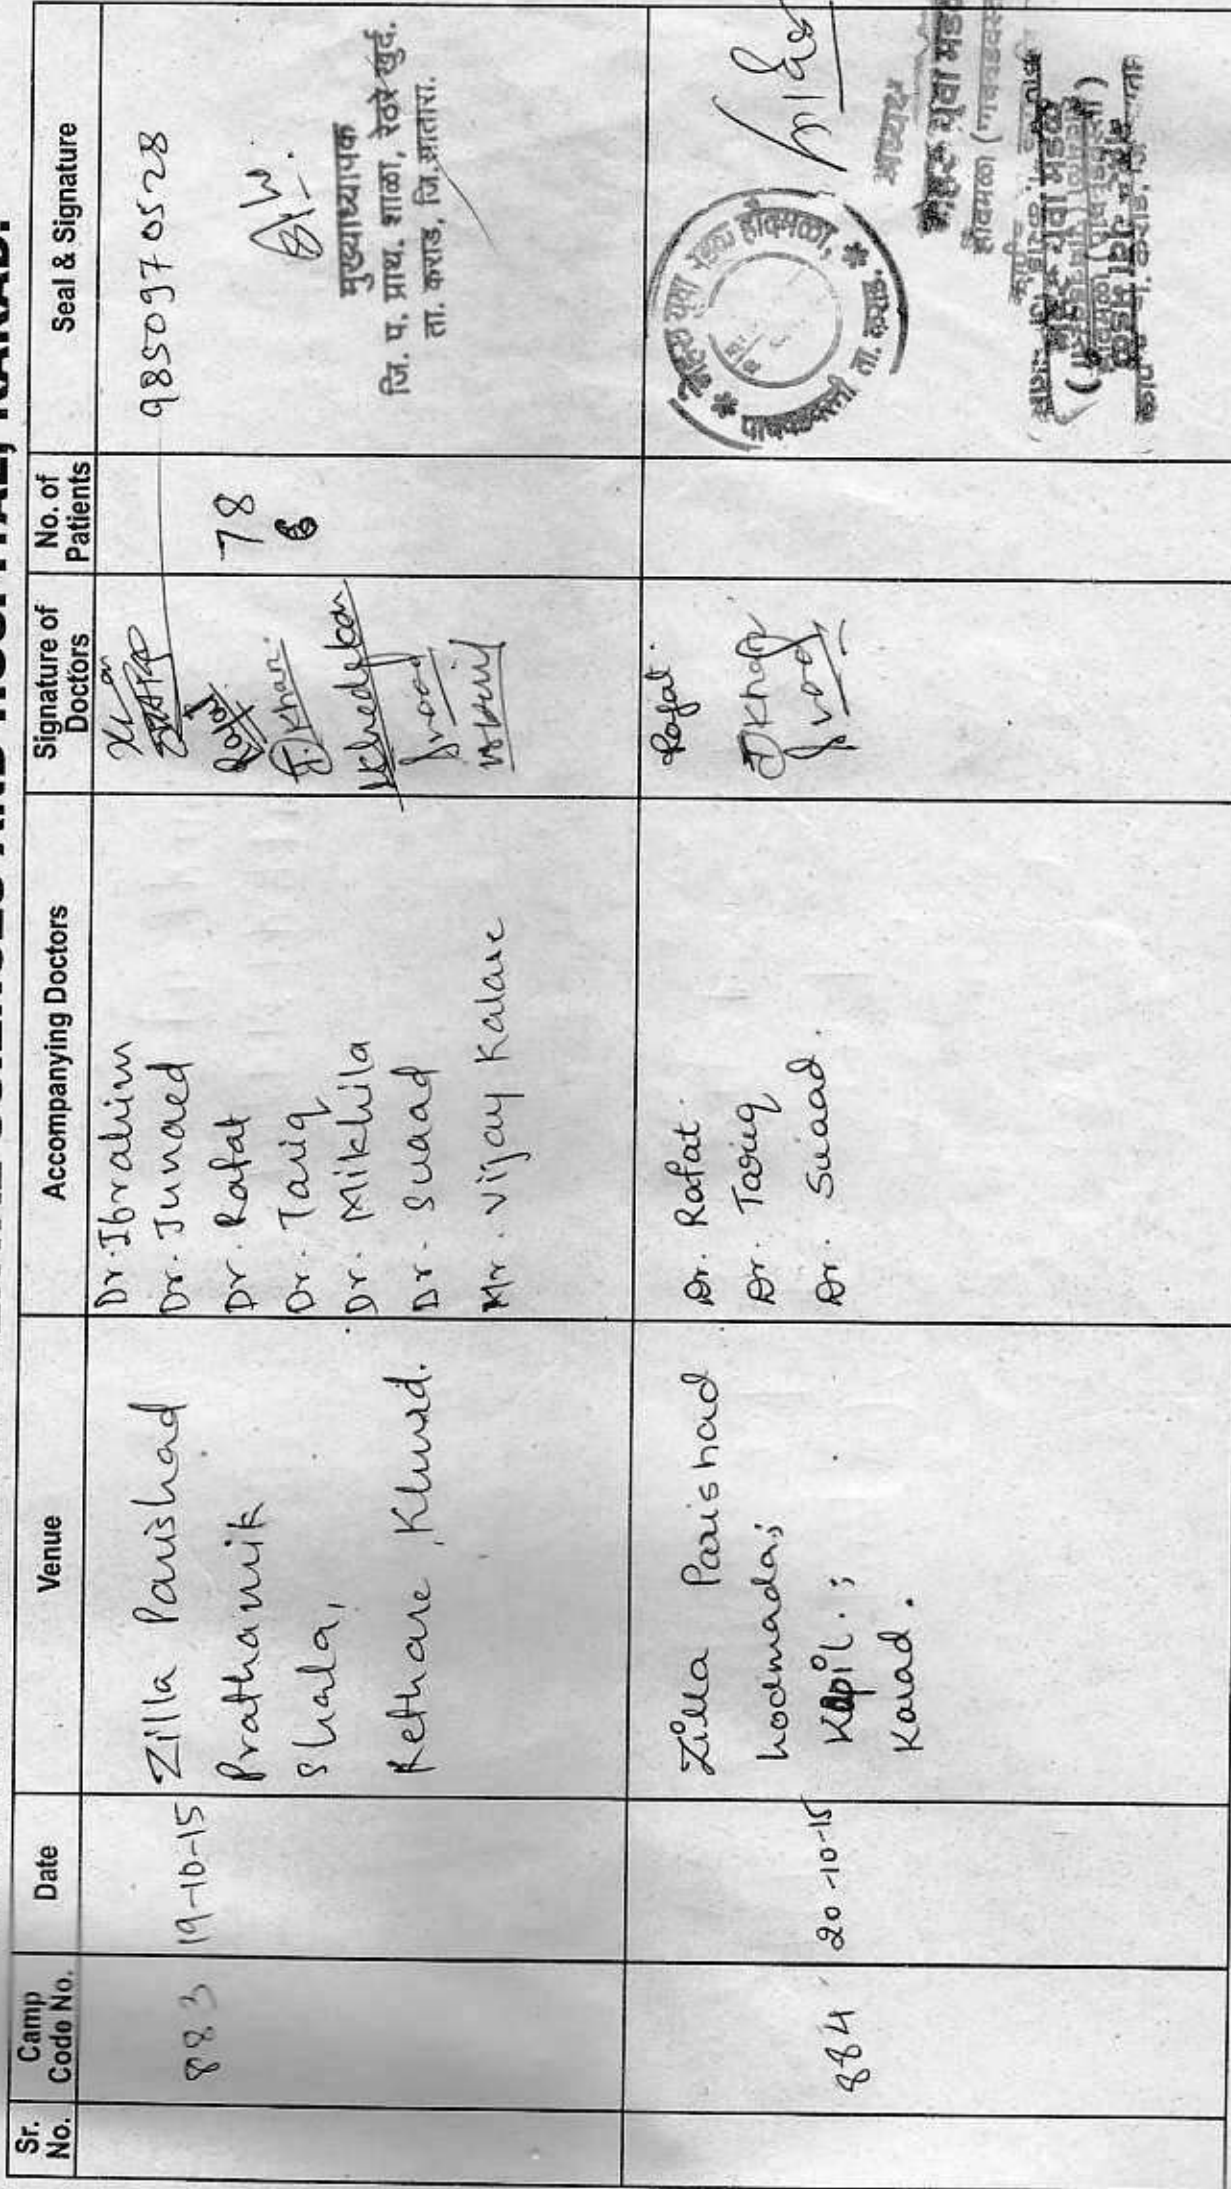 AND HOSPITAL, KARAD.
Sr. No.
Camp Code No.
Date
Venue
Accompanying Doctors
Signature of Doctors
No. of Patients
Seal & Signature
883
19-10-15
Zilla Parishad
Prathamik
Shala,
Rethare Khurd.
Dr. Ibrahim
Dr. Junaed
Dr. Rafat
Dr. Tariq
Dr. Mikhila
Dr. Suaad
Mr. Vijay Kalare
Rafat
J.Khan.
Khedekar
78
9850970528
मुख्याध्यापक
जि. प. प्राथ. शाळा, रेठरे खुर्द.
ता. कराड, जि. सातारा.
884
20-10-15
Zilla Parishad
hodmada;
Kapil.;
Karad.
Dr. Rafat.
Dr. Tariq
Dr. Suaad.
Rafat.
Khan
युवा मंडळ होंदमळा,
ता. कराड.
अध्यक्ष
युवा मंडळ
होंदमळा